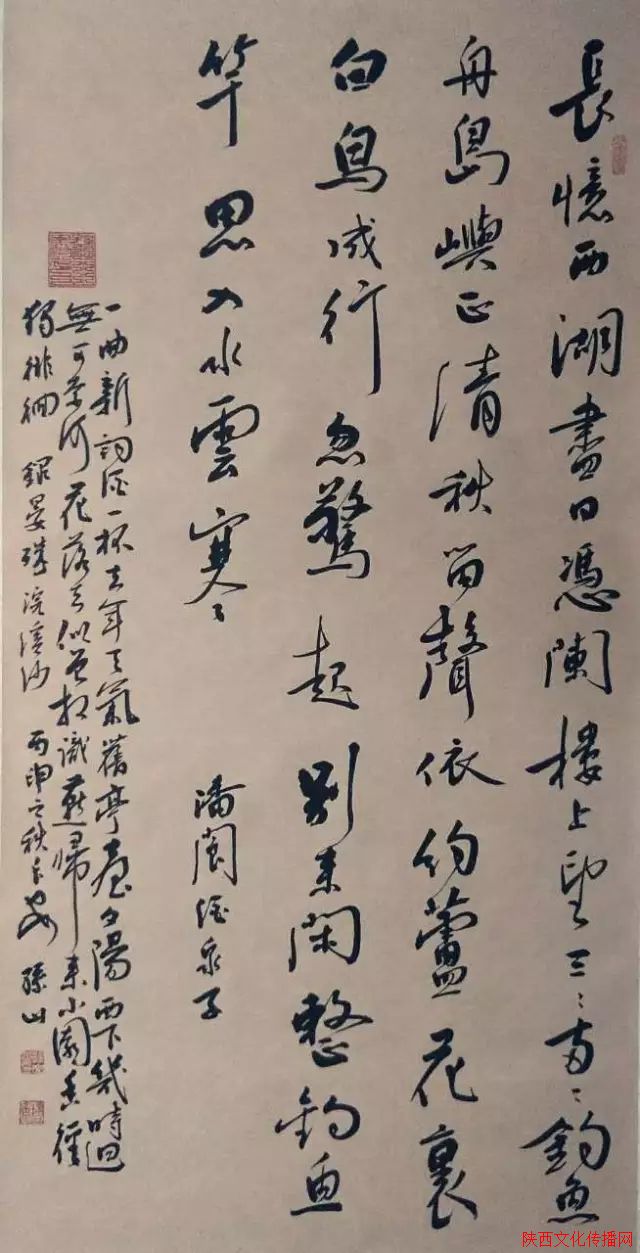 長憶西湖盡日憑闌樓上望三〻兩〻釣魚
舟島嶼正清秋笛聲依約蘆花裏
白鳥成行忽驚起別來閑整釣魚
竿思入水雲寒
潘閬酒泉子
一曲新詞酒一杯去年天氣舊亭臺夕陽西下幾時迴
無可奈何花落去似曾相識燕歸來小園香徑
獨徘徊 錄晏殊浣溪沙 丙申之秋長安 孫山
陕西文化传播网